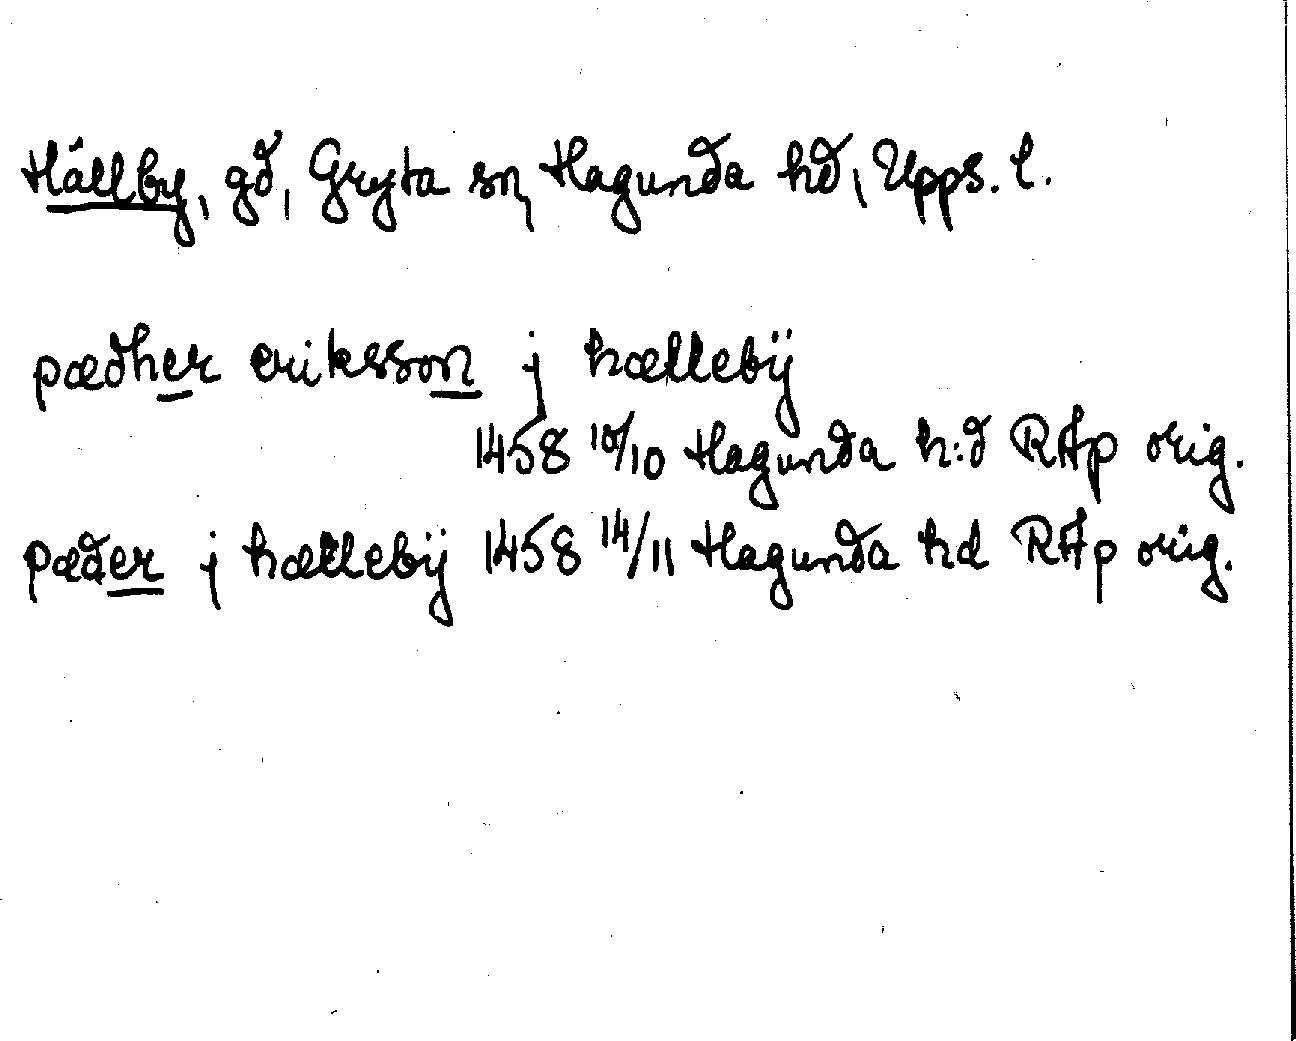 Hällby, gd, Gryta sn, Hagunda hd, Upps. l.
pædher eriksson j hællebÿ
1458 10/10 Hagunda h:d RAp orig.
pæder j hællebÿ 1458 14/11 Hagunda hd RAp orig.